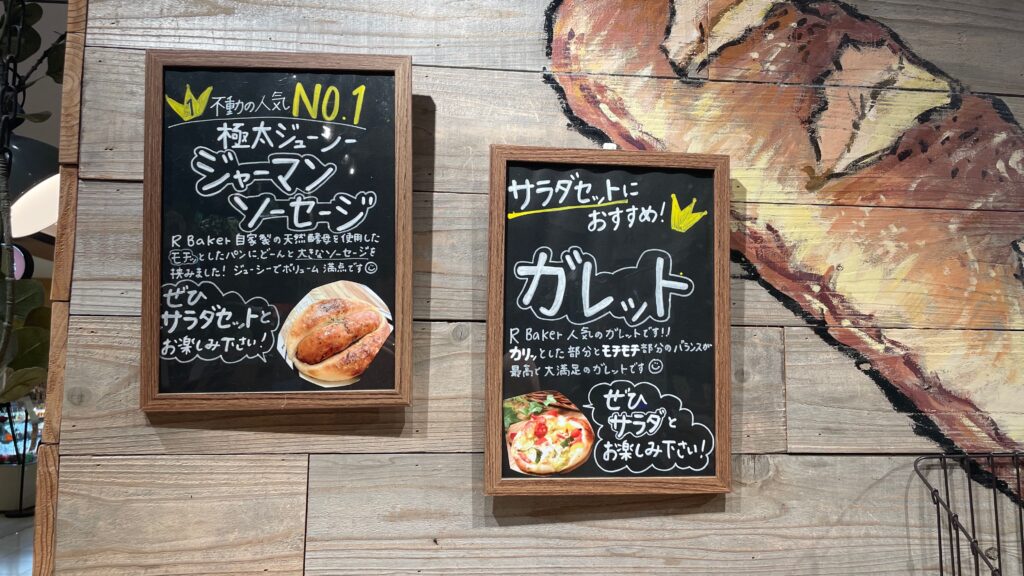 1 不動の人気 NO.1
極太ジューシー
ジャーマン
ソーセージ
R Baker 自家製の天然酵母を使用した
モチッとしたパンにどーんと大きなソーセージを
挟みました！ジューシーでボリューム満点です
ぜひ
サラダセットと
お楽しみ下さい！
サラダセットに
おすすめ！
ガレット
R Baker 人気のガレットです！！
カリッとした部分とモチモチ部分のバランスが
最高で大満足のガレットです
ぜひ
サラダと
お楽しみ下さい！